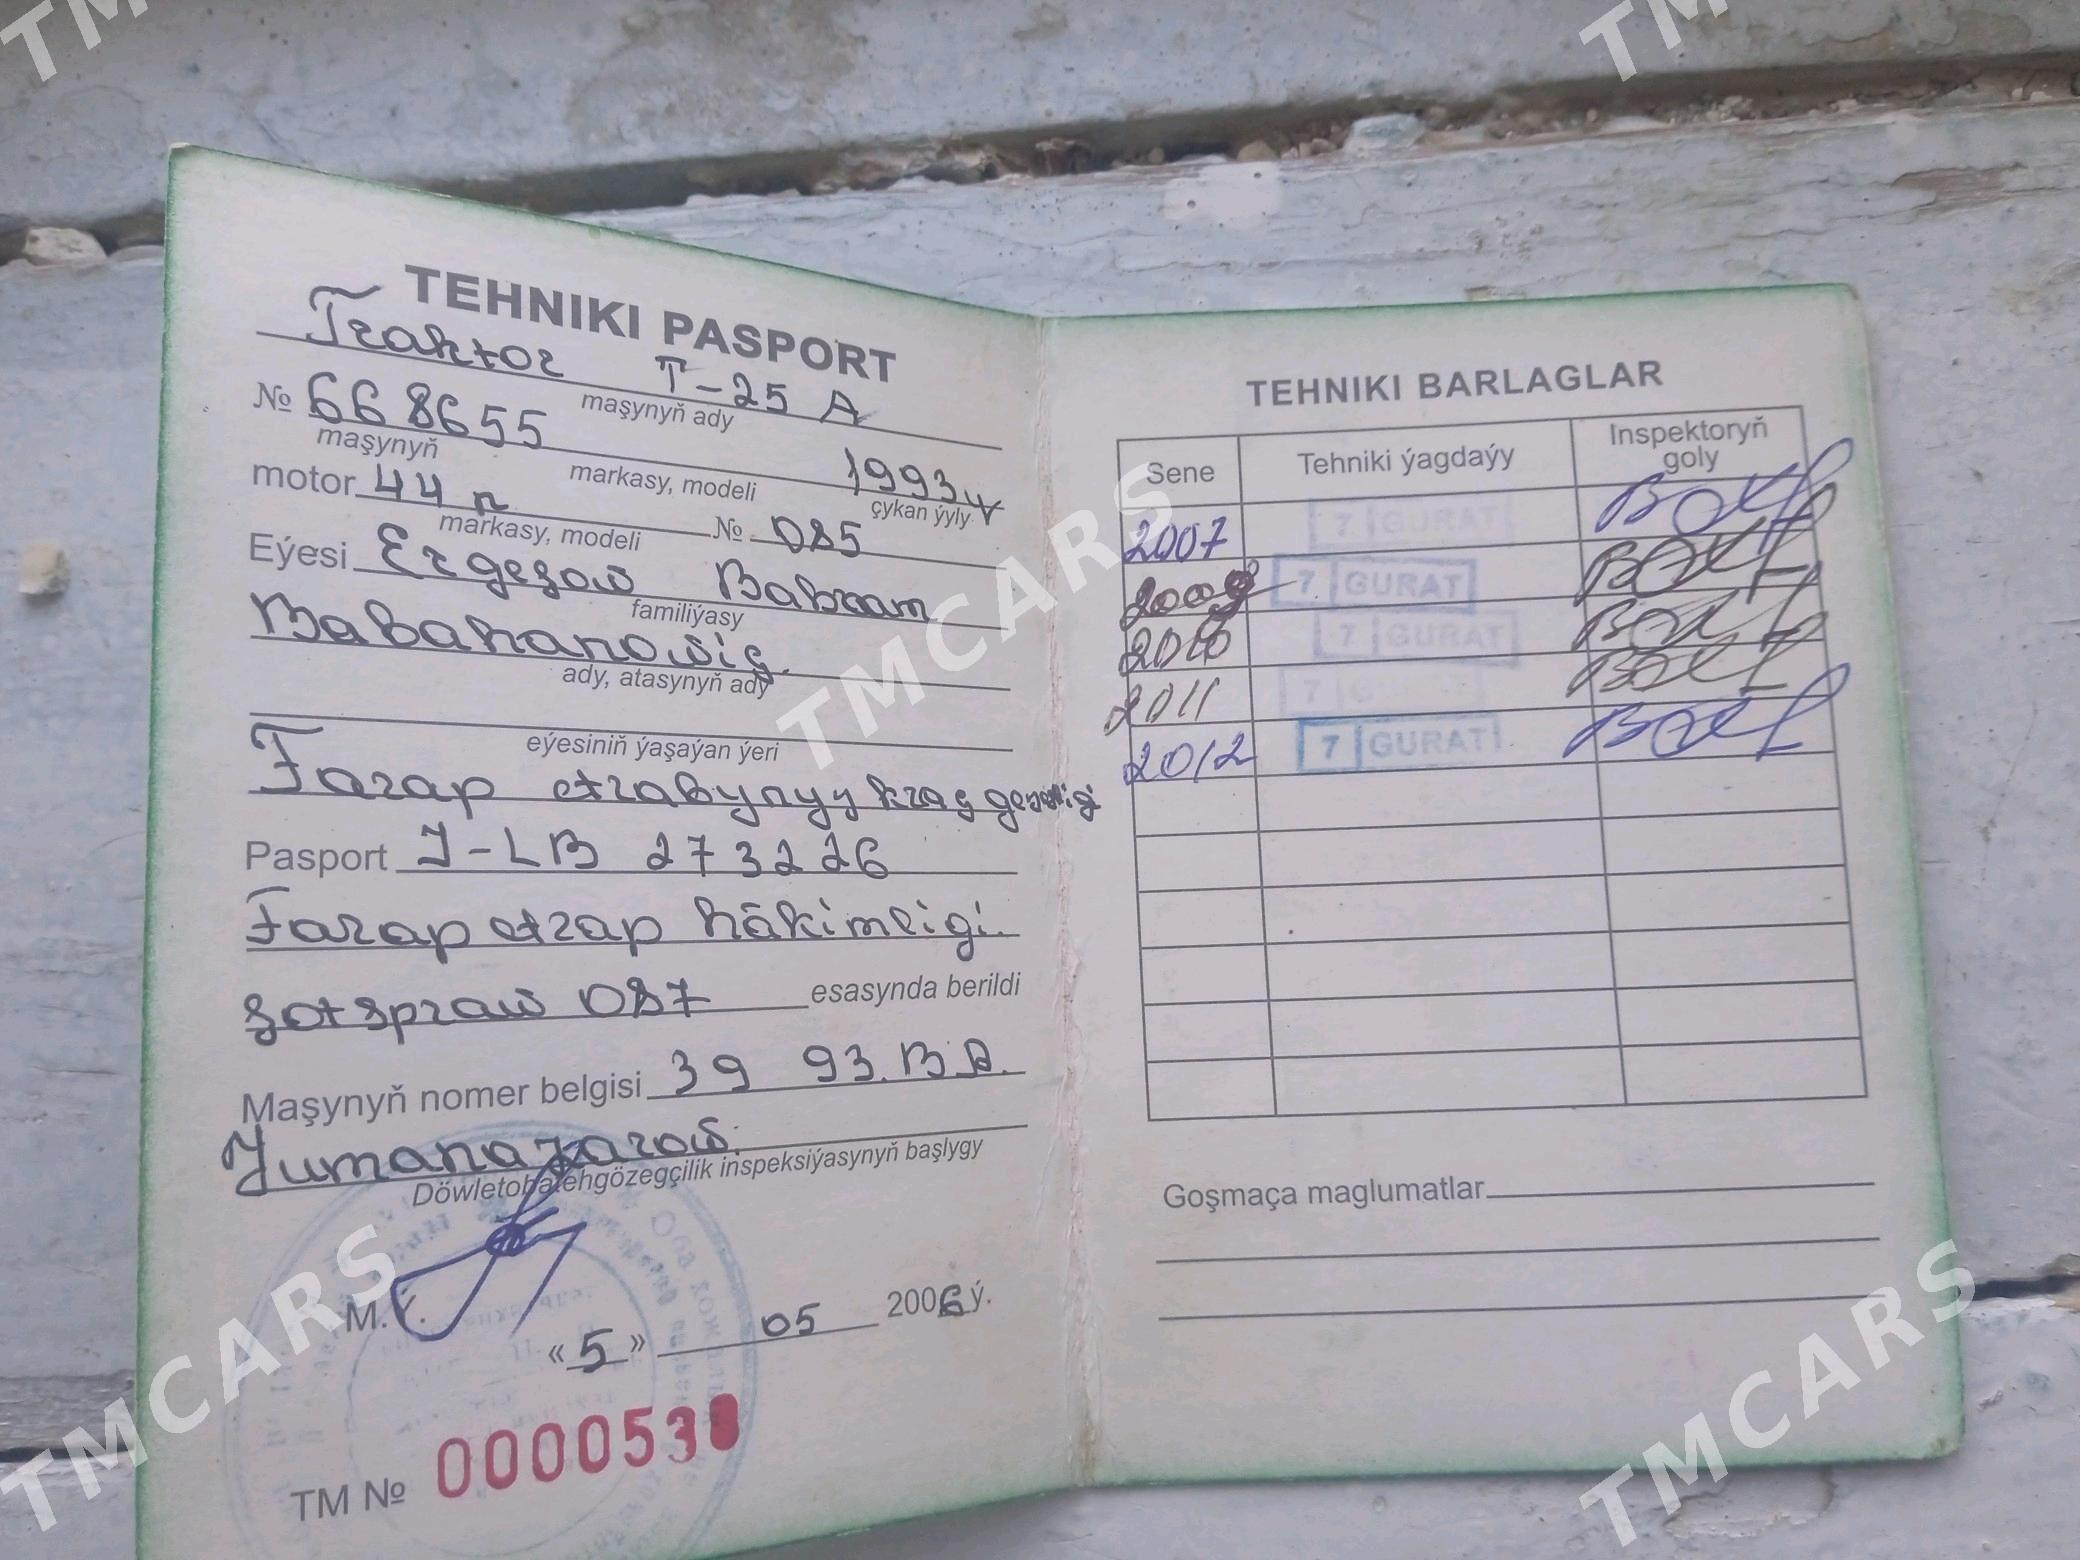 TEHNIKI PASPORT
Traktor T-25 A
maşynyň ady
№ 668655 1993ý
maşynyň markasy, modeli çykan ýyly
motor 44 n № 085
markasy, modeli
Eýesi Ergeşow Bahram
familiýasy
Babahanowiç
ady, atasynyň ady
eýesiniň ýaşaýan ýeri
Farap etrabynyň
Pasport I-LB 273226
Farap etrap häkimligi
sotspraw 087 esasynda berildi
Maşynyň nomer belgisi 39 93. BA.
Jumanazarow
Döwletobatehgözegçilik inspeksiýasynyň başlygy
M.Ý.
«5» 05 2006ý.
TM № 000053
TEHNIKI BARLAGLAR
Sene Tehniki ýagdaýy Inspektoryň goly
2007 7 GURAT
7 GURAT
2010 7 GURAT
2011 7
2012 7 GURAT
Goşmaça maglumatlar
TMCARS
TMCARS
TMCARS